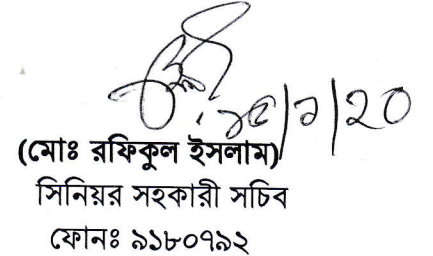 ১৫/১/২০
(মোঃ রফিকুল ইসলাম)
সিনিয়র সহকারী সচিব
ফোনঃ ৯১৮০৭৯২